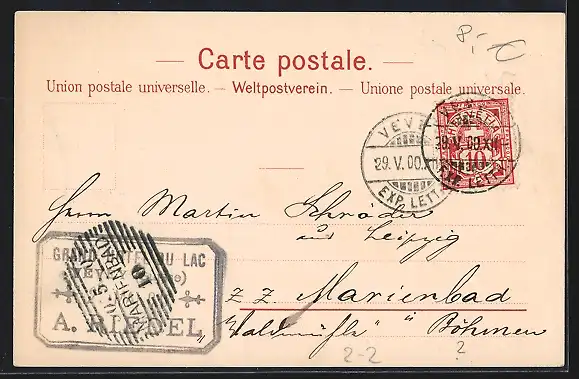 8,- €
— Carte postale. —
Union postale universelle. — Weltpostverein. — Unione postale universale.
VEVEY
29. V. 00. XII
EXP. LETT.
VEVEY
29. V. 00. XII
EXP. LETT.
HELVETIA
10
Herrn Martin Schröder
aus Leipzig
GRAND HOTEL DU LAC
VEVEY
A. RIEDEL
MARIENBAD
z. Z. Marienbad
"Waldmühle" Böhmen
2-2 ?